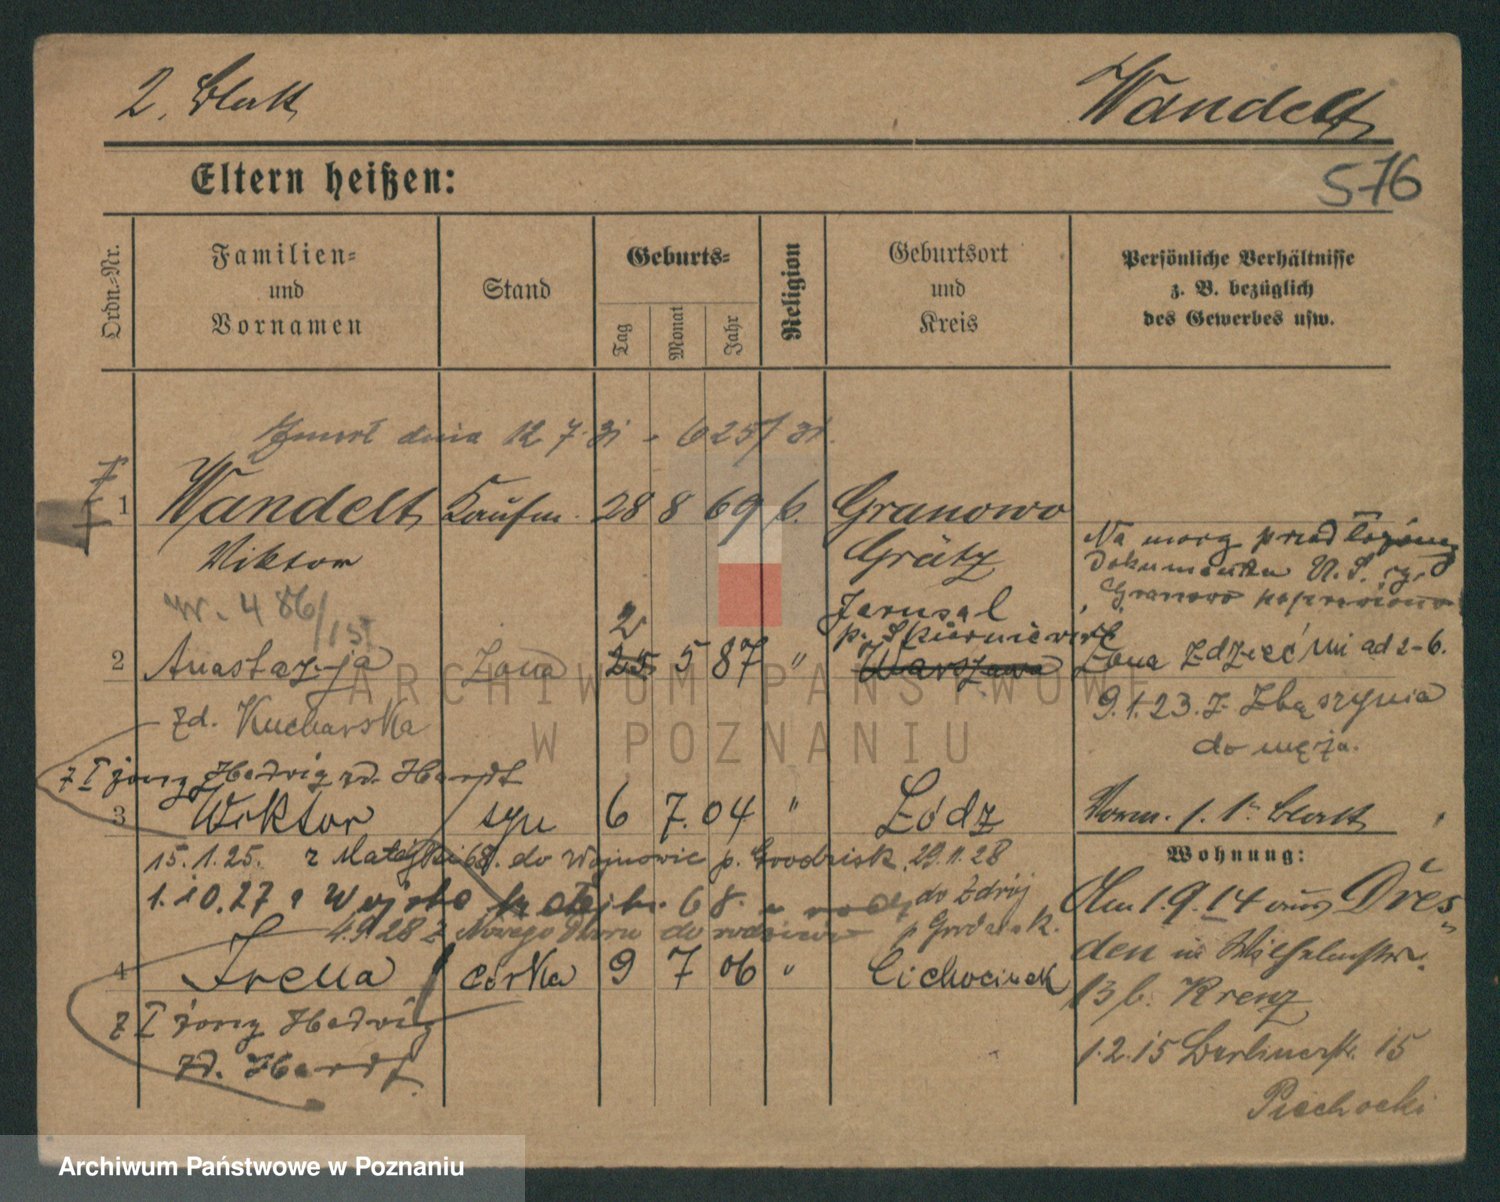 2. Blatt
Wandelt
Eltern heißen:
576
Ordn.-Nr.
Familien-
und
Vornamen
Stand
Geburts-
Tag
Monat
Jahr
Religion
Geburtsort
und
Kreis
Persönliche Verhältnisse
z. B. bezüglich
des Gewerbes usw.
Zmarł dnia 12 7 31 - 6257/31.
1 Wandelt Kaufm. 28 8 69 k. Granowo
Viktor Grätz
Na mocy przedłożonego
Dokumentu U.S.
Granowo poprawiono
Nr. 486/
Jerusal
p. Skierniewice
2
2 Anastazja Żona 25 5 87 " Warszawa
żona z dziećmi ad 2-6.
9.1.23. z Zbąszynia
do męża.
zd. Kucharska
z I żony Hedwig zd. Hardt
3 Wiktor syn 6 7. 04 " Łódz
Vorm. 1. Blatt
15.1.25. z Matejki 68. do Wojnowic p. Grodzisk 29.11.28
1.10.27 z 68. do Zdrój
4.9.28 z Nowego do p Grodzisk.
4 Irena córka 9 7 06 " Ciechocinek
z I żony Hedwig
zd. Hardt
Wohnung:
Am 1.9.14 aus Dres-
den in Wilhelmstr.
13 b. Krenz
1.2.15 Berlinerstr. 15
Piechocki
ARCHIWUM PAŃSTWOWE
W POZNANIU
Archiwum Państwowe w Poznaniu